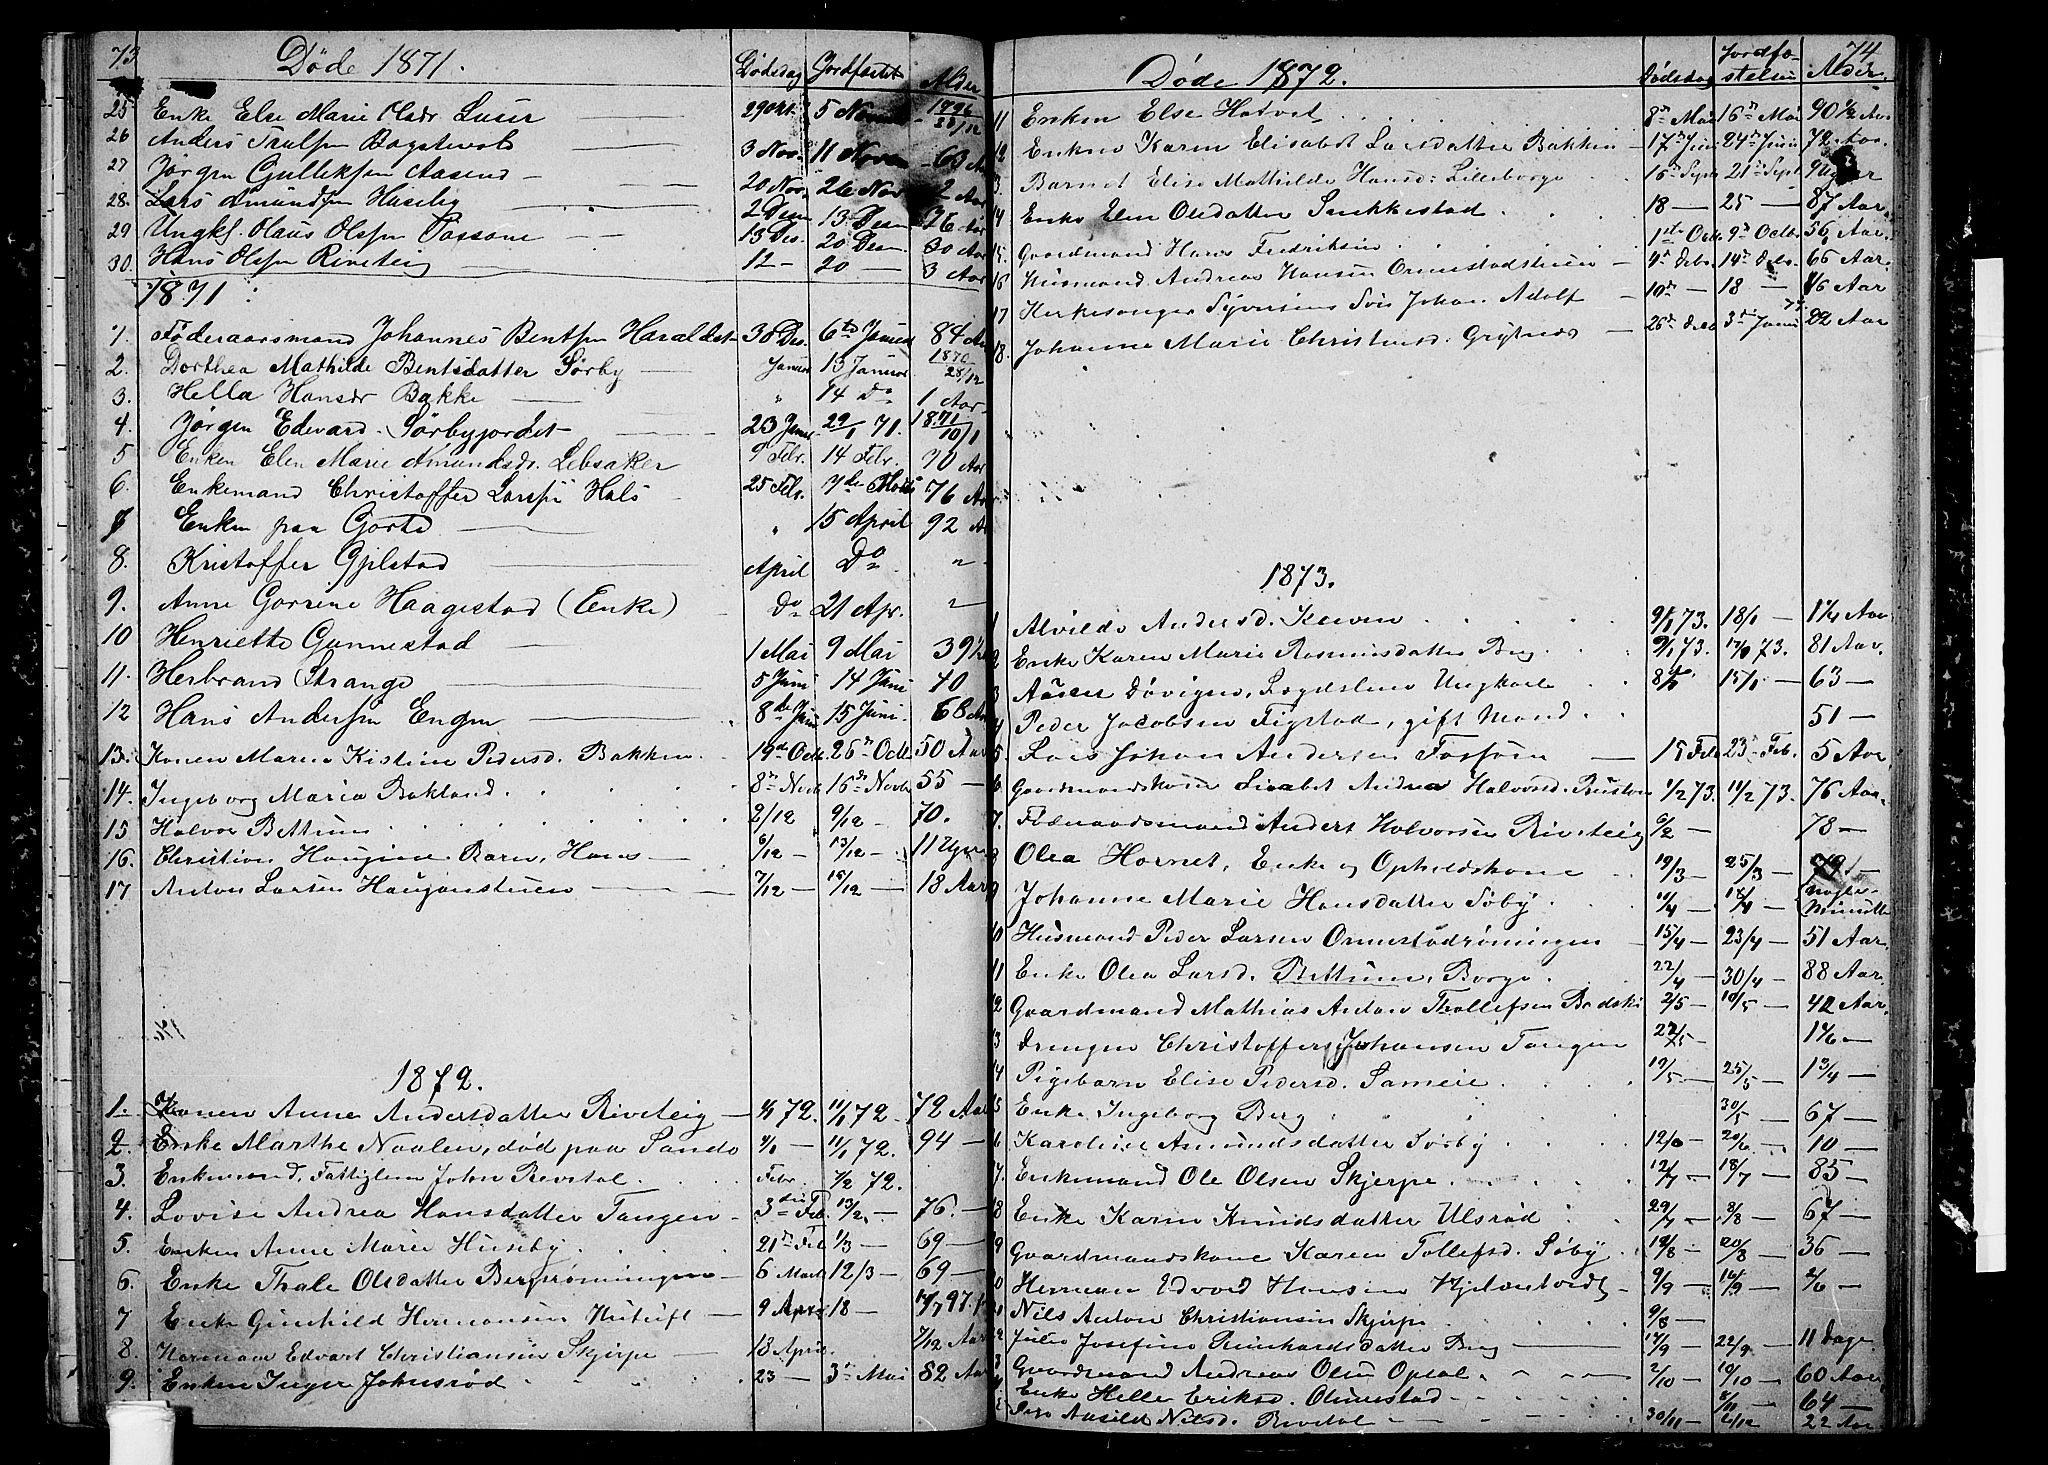 73
Døde 1871.
Dødsdag Jordfæstet Alder
25 Enke Else Marie Olsdr 29 Okt. 5 Novem 1796
26 Anders 3 Nov. 11 Novem 63 Aar
27 Jørgen Gulleksen Aasend 20 Nov. 26 Nov 2 Aar
28. Lars Amundsen Huseby 2 Desm 13 Desm 76 Aar
29 Ungkl. Olaus Olsen 13 Des. 20 Desm 30 Aar
30. Hans Olsen Riveteig 12 — 20 — 3 Aar
1871:
1. Føderaarsmand Johannes Bentsen Haraldst 30 Des. 6te Januar 84 Aar
2. Dorthea Mathilde Bentsdatter Sørby Januar 13 Januar 1870 28/12
3. Hella Hansdr Bakke — " 14 Do 1 Aar
4. Jørgen Edevard Sørbyjordet 23 Janu. 29/1 71. 1871 10/1
5 Enken Elen Marie Amundsdr. Lebsaker 9 Febr. 14 Febr. 70 Aar
6. Enkemand Christoffer Larsen Hals 25 Febr. 7de Marts 76 Aar
7 Enken paa Gorte — " 15 April 92 Aar
8. Kristoffer Gjelstad April Do "
9. Anne Gorrene Haagestad (Enke) Do 21 Apr. "
10 Henriette Gunnestad 1 Mai 9 Mai 39 1/2
11. Herbrand Strange 5 Juni 14 Juni 40
12 Hans Andersen Engen 8de Juni 15 Juni. 68 Aar
13. Konen Maren Kistine Pedersd. Bakken 19de Octb 26n Octb 50 Aar
14. Ingeborg Maria Bakland 8n Novb 16n Novb 55 —
15 Halvor Bettum 2/12 9/12 — 70.
16. Christian Haugene Barn, Hans — 6/12 — 13/12 — 11 Uger
17 Anton Larsen Haugenstuen — 7/12 — 15/12 — 18 Aar
1872.
1. Konen Anne Andersdatter Riveteig — 4/1 72. 11/1 72. 72 Aar
2. Enke Marthe Naalen, død paa Sando 4/1 — 11/1 72. 94 —
3. Enkemand, Fattiglem John Revetal Febr. 7/2 72.
4. Lovise Andrea Hansdatter Tangen 3die Feb. 13/2. — 76. —
5. Enken Anne Marie Huseby 21n Feb 1/3 — 69 —
6. Enke Thale Olsdatter Bergsrønningen — 6 Mart 12/3 — 69 —
7 Enke Gunhild Hermansen 9 April 18 — 97
8. Herman Edvart Christiansen Skjerpe — 18 April 7/12 Aar
9. Enken Inger Johnsrød 23 — 3n Mai 82 Aar
74
Døde 1872.
Dødsdag Jordfæstelse Alder
11 Enken Else Hotvet 8n Mai 16n Mai 90 1/2 Aar
12 Enken Karen Elisabet Larsdatter Bakken 17n Juni 24n Juni 72 Aar.
3. Barnet Elise Mathilde Hansd: Lilleborge 16n Sept 21n Sept
14 Enke Elen Olsdatter Snekkestad 18 — 25 — 87 Aar
15. Gaardmand Hans Fredriksen 1ste Octb 9n Octb. 56 Aar.
16 Husmand Andreas Hansen Ormestadstuen — 4n Debs. 14n Debs. 66 Aar.
17 Kirkesanger Syversens Søn Johan Adolf — 10n — 18 — 16 Aar
18. Johanne Marie Christensd. Grytnes — 26n Deb 3die Januar 73 22 Aar
1873.
1 Alvilde Andersd. Keiven 9/1 73. 18/1 — 1 1/4 Aar
2 Enke Karen Marie Rasmusdatter Berg 9/1 73. 17/1 73. 81 Aar.
3 Ungkarl 8/1 15/1 — 63 —
4 Peder Jacobsen Figstad, gift Mand 51 —
5 Lars Johan Andersen Fossum — 15 Feb 23n Feb. 5 Aar
6 Gaardmandskone Lisabet Andrea Halvorsd. 1/2 73. 11/2 73. 76 Aar.
7. Føderaadsmand Anders Halvorsen Riveteig 6/2 — 78 —
8 Olea Hornet, Enke og Opholdskone 19/3 — 25/3 — 79 —
9 Johanne Marie Hansdatter Søby 11/4 — 12/4 — nogle Minutter
10 Husmand Peder Larsen Ormestadrønningen — 15/4 — 23/4 — 51 Aar.
11 Enke Olea Larsd. Bettum, Borge 22/4 — 30/4 — 88 Aar.
12 Gaardmand Mathias Anton Thollefsen 2/5 — 10/5 — 42 Aar.
3 Drengen Christoffer Johansen Tangen 22/5 — 1 1/6 —
4 Pigebarn Elise Pedersd. Sameie 19/5 — 25/5 — 1 3/4 —
5 Enke Ingeborg Berg 30/5 — 67 —
6 Karoline Asmundsdatter Sørby 12/6 — 20/6 — 10 —
7. Enkemand Ole Olsen Skjerpe 12/7 — 18/7 — 85 —
8 Enke Karen Knudsdatter Ulsrød 29/7 — 8/8 — 67 —
9 Gaardmandskone Karen Tollefsd. Søby 12/8 — 20/8 — 36 —
0 Herman Edvard Hansen 9/9 — 16/9 — 2/6 —
1 Nils Anton Christiansen Skjerpe 9/8 —
2 Julie Josefine Reinhardsdatter Berg — 17/9 22/9 11 Dage
3 Gaardmand Andreas Olsen Opsal 2/10 — 10/10 — 60 Aar
4 Enke Helle Eriksd. Olumstad 8/11 — 64 —
5 Pige Aasild Nilsd. Revetal — 30/11 — 6/12 22 Aar.